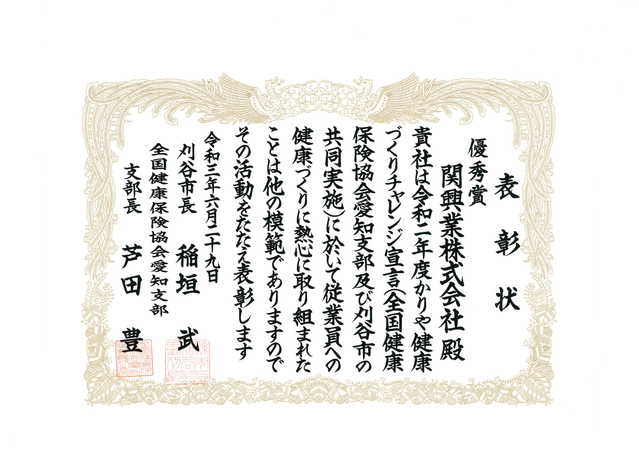 表彰状
優秀賞
関興業株式会社 殿
貴社は令和二年度かりや健康
づくりチャレンジ宣言(全国健康
保険協会愛知支部及び刈谷市の
共同実施)に於いて従業員への
健康づくりに熱心に取り組まれた
ことは他の模範でありますので
その活動をたたえ表彰します
令和三年六月二十九日
刈谷市長 稲垣 武
全国健康保険協会愛知支部
支部長 芦田 豊